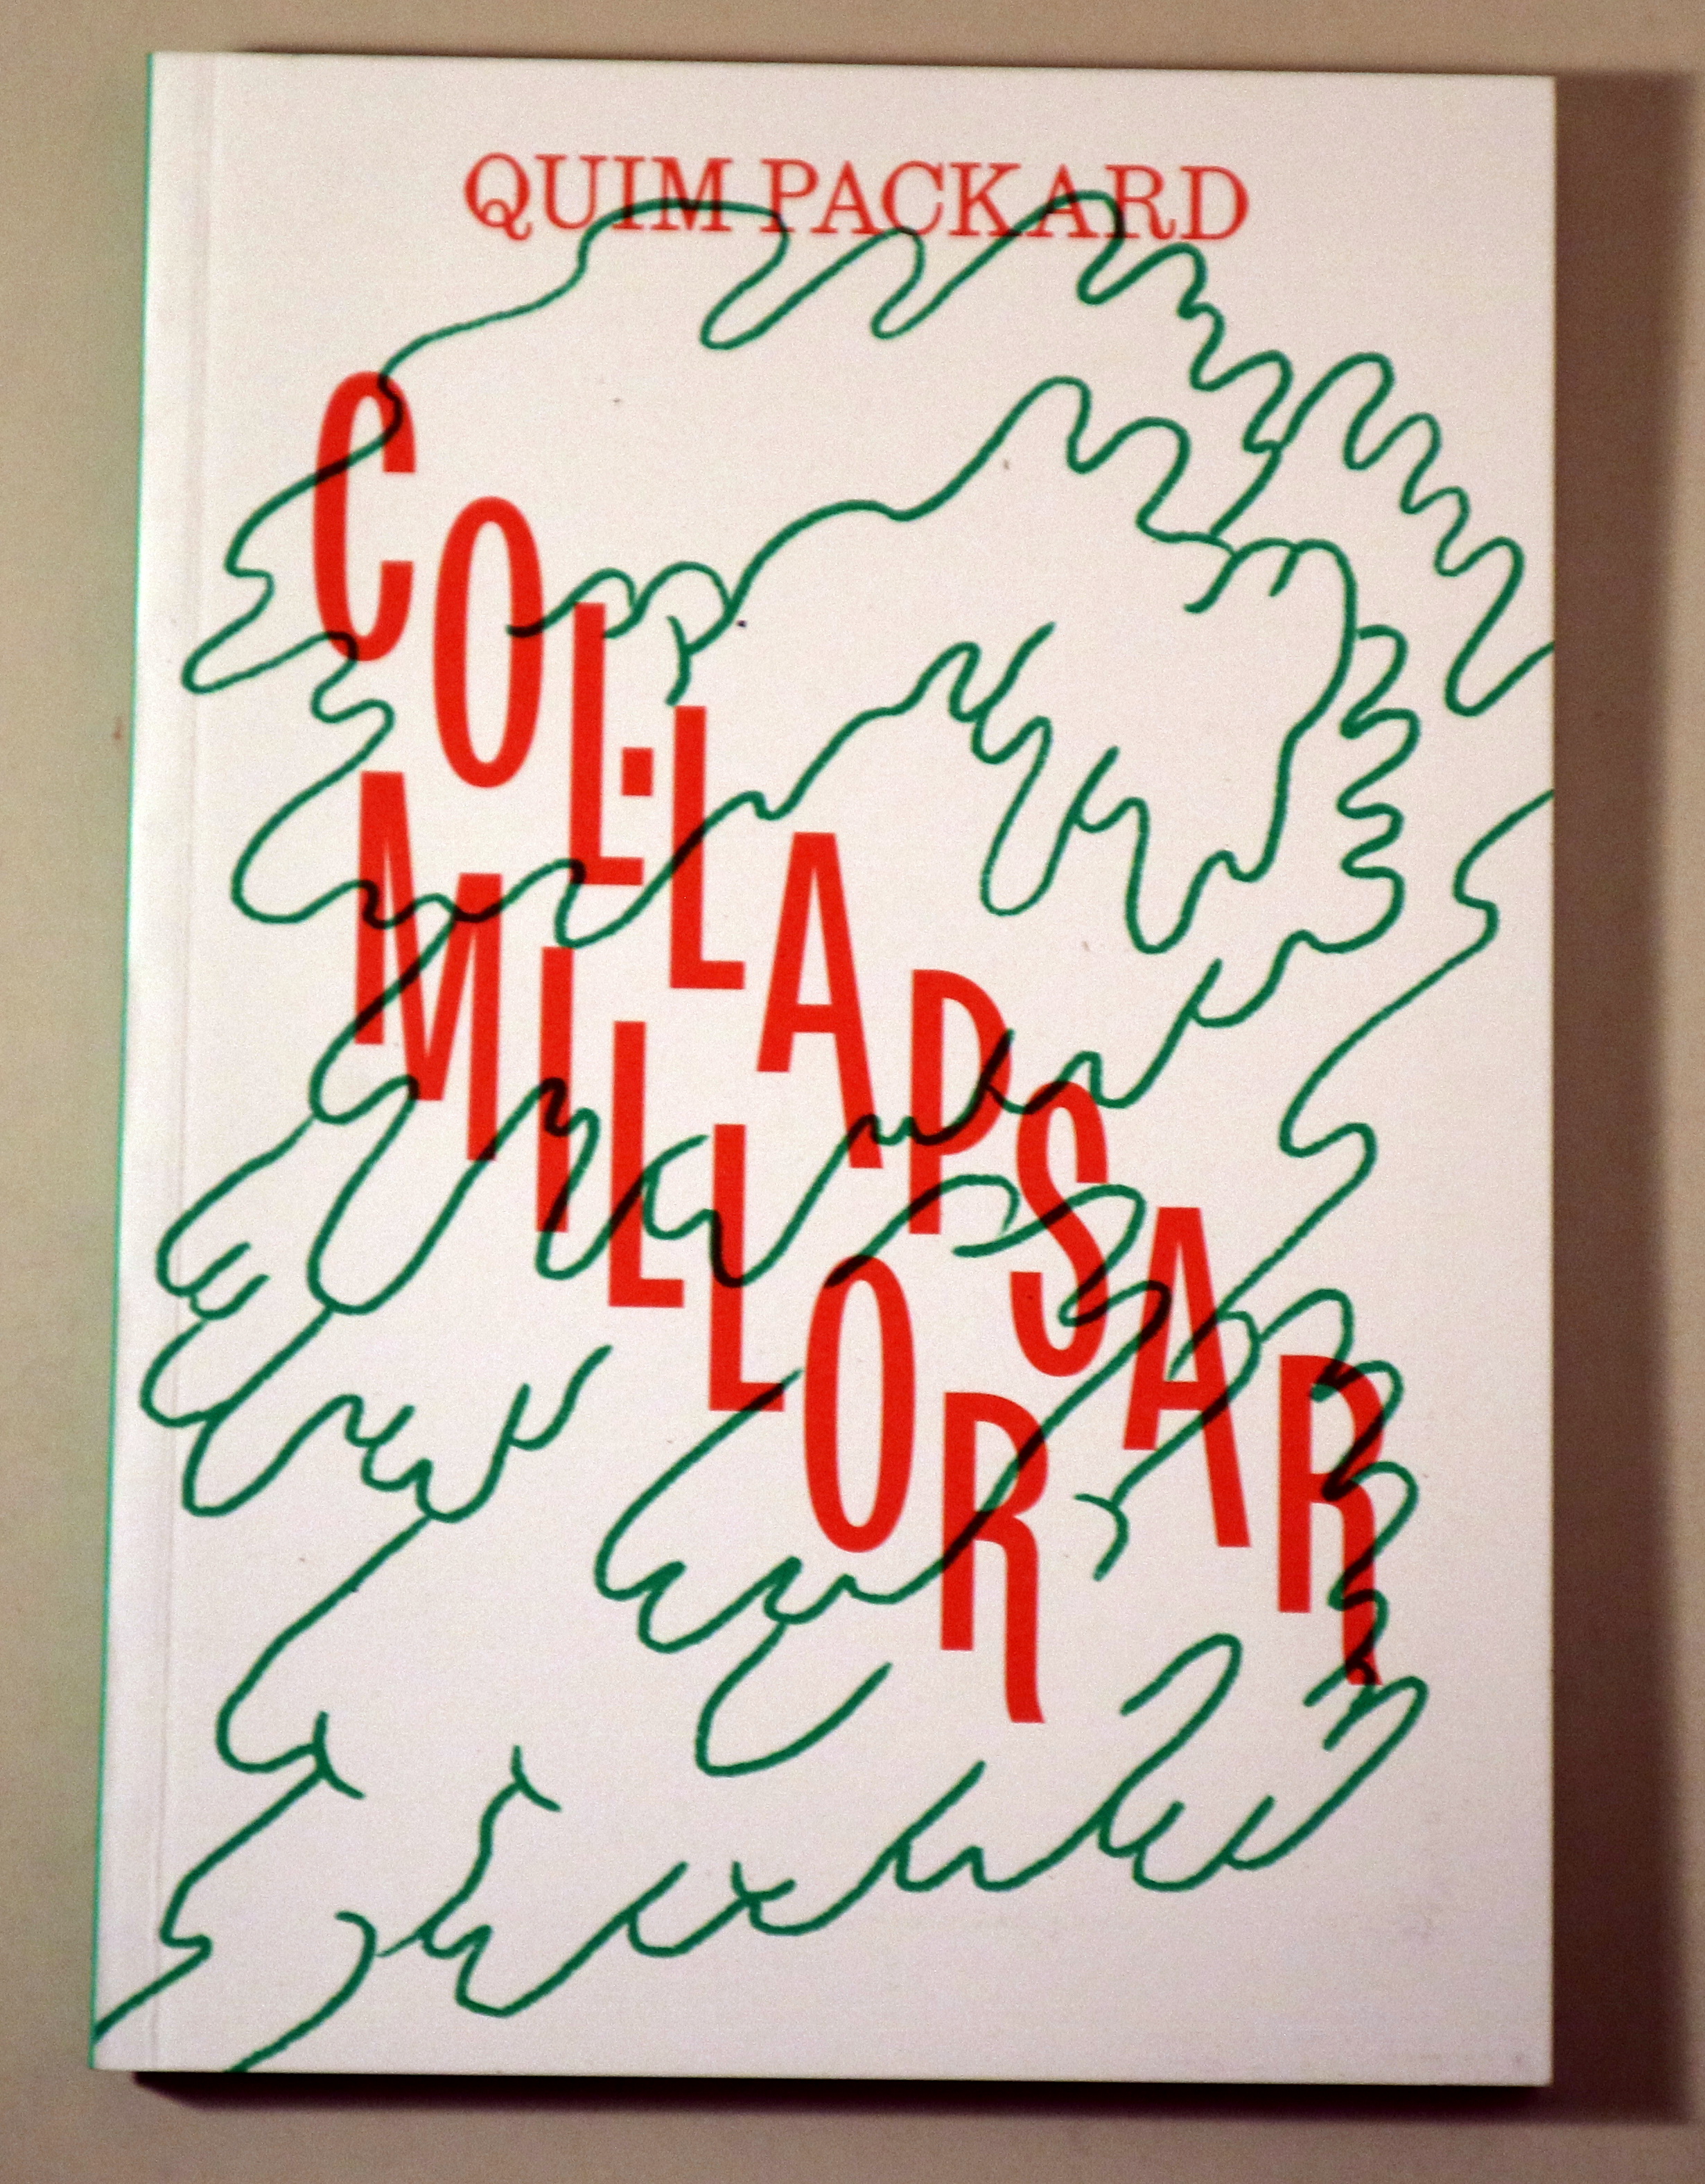 QUIM PACKARD
COL·LAPSAR
MILLOR